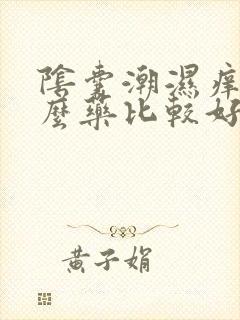 陰囊潮濕痒
麼藥比較好
黃子娟